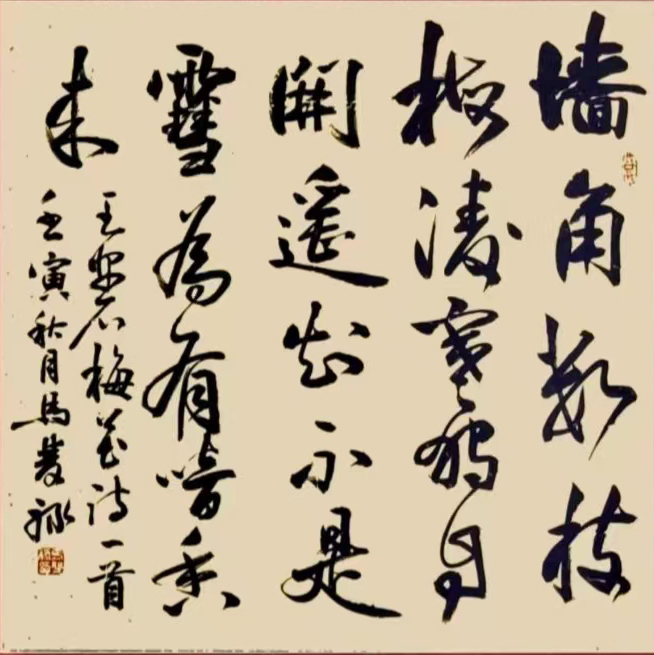 墙角数枝
梅凌寒独自
開遥知不是
雪為有暗香
来
王安石梅花诗一首
壬寅秋月馬